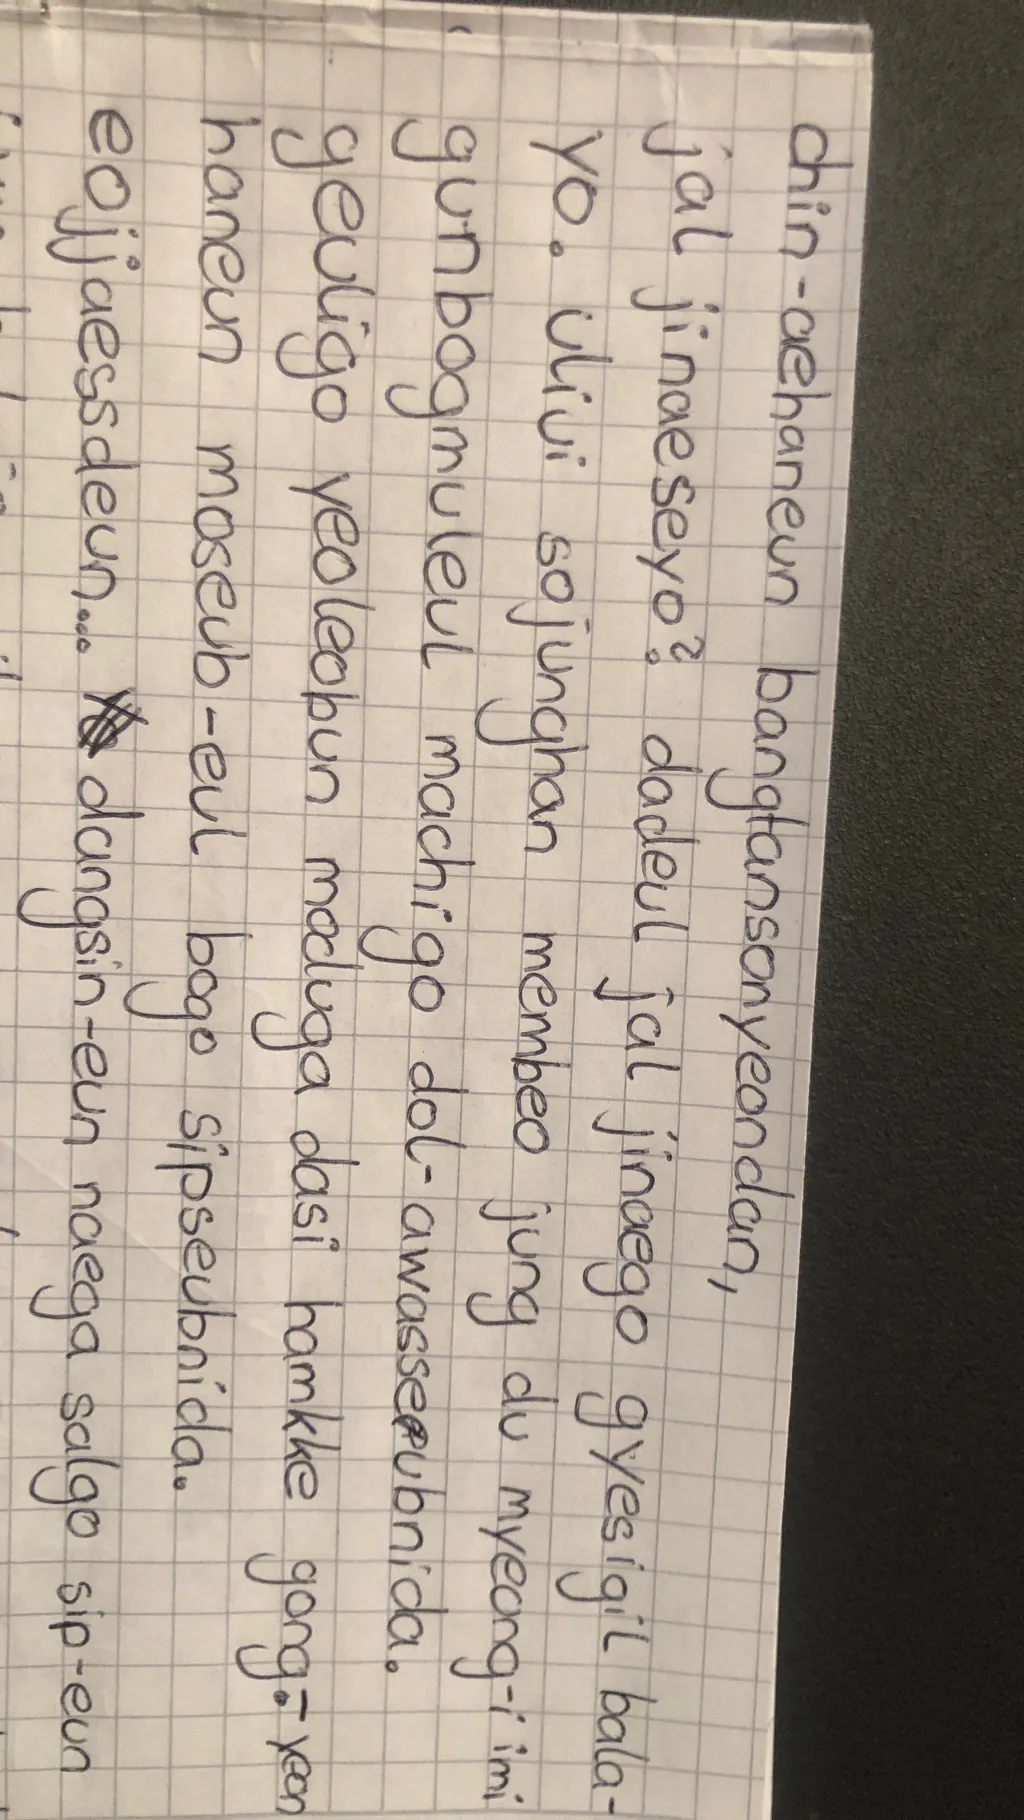 chin-aehaneun bangtansonyeondan,
jal jinaeseyo? dadeul jal jinaego gyesigil bala-
yo. uliui sojunghan membeo jung du myeong-i imi
gunbogmuleul machigo dol-awasseubnida.
geuligo yeoleobun moduga dasi hamkke gong-yeon
haneun moseub-eul bogo sipseubnida.
eojjaessdeun... dangsin-eun naega salgo sip-eun